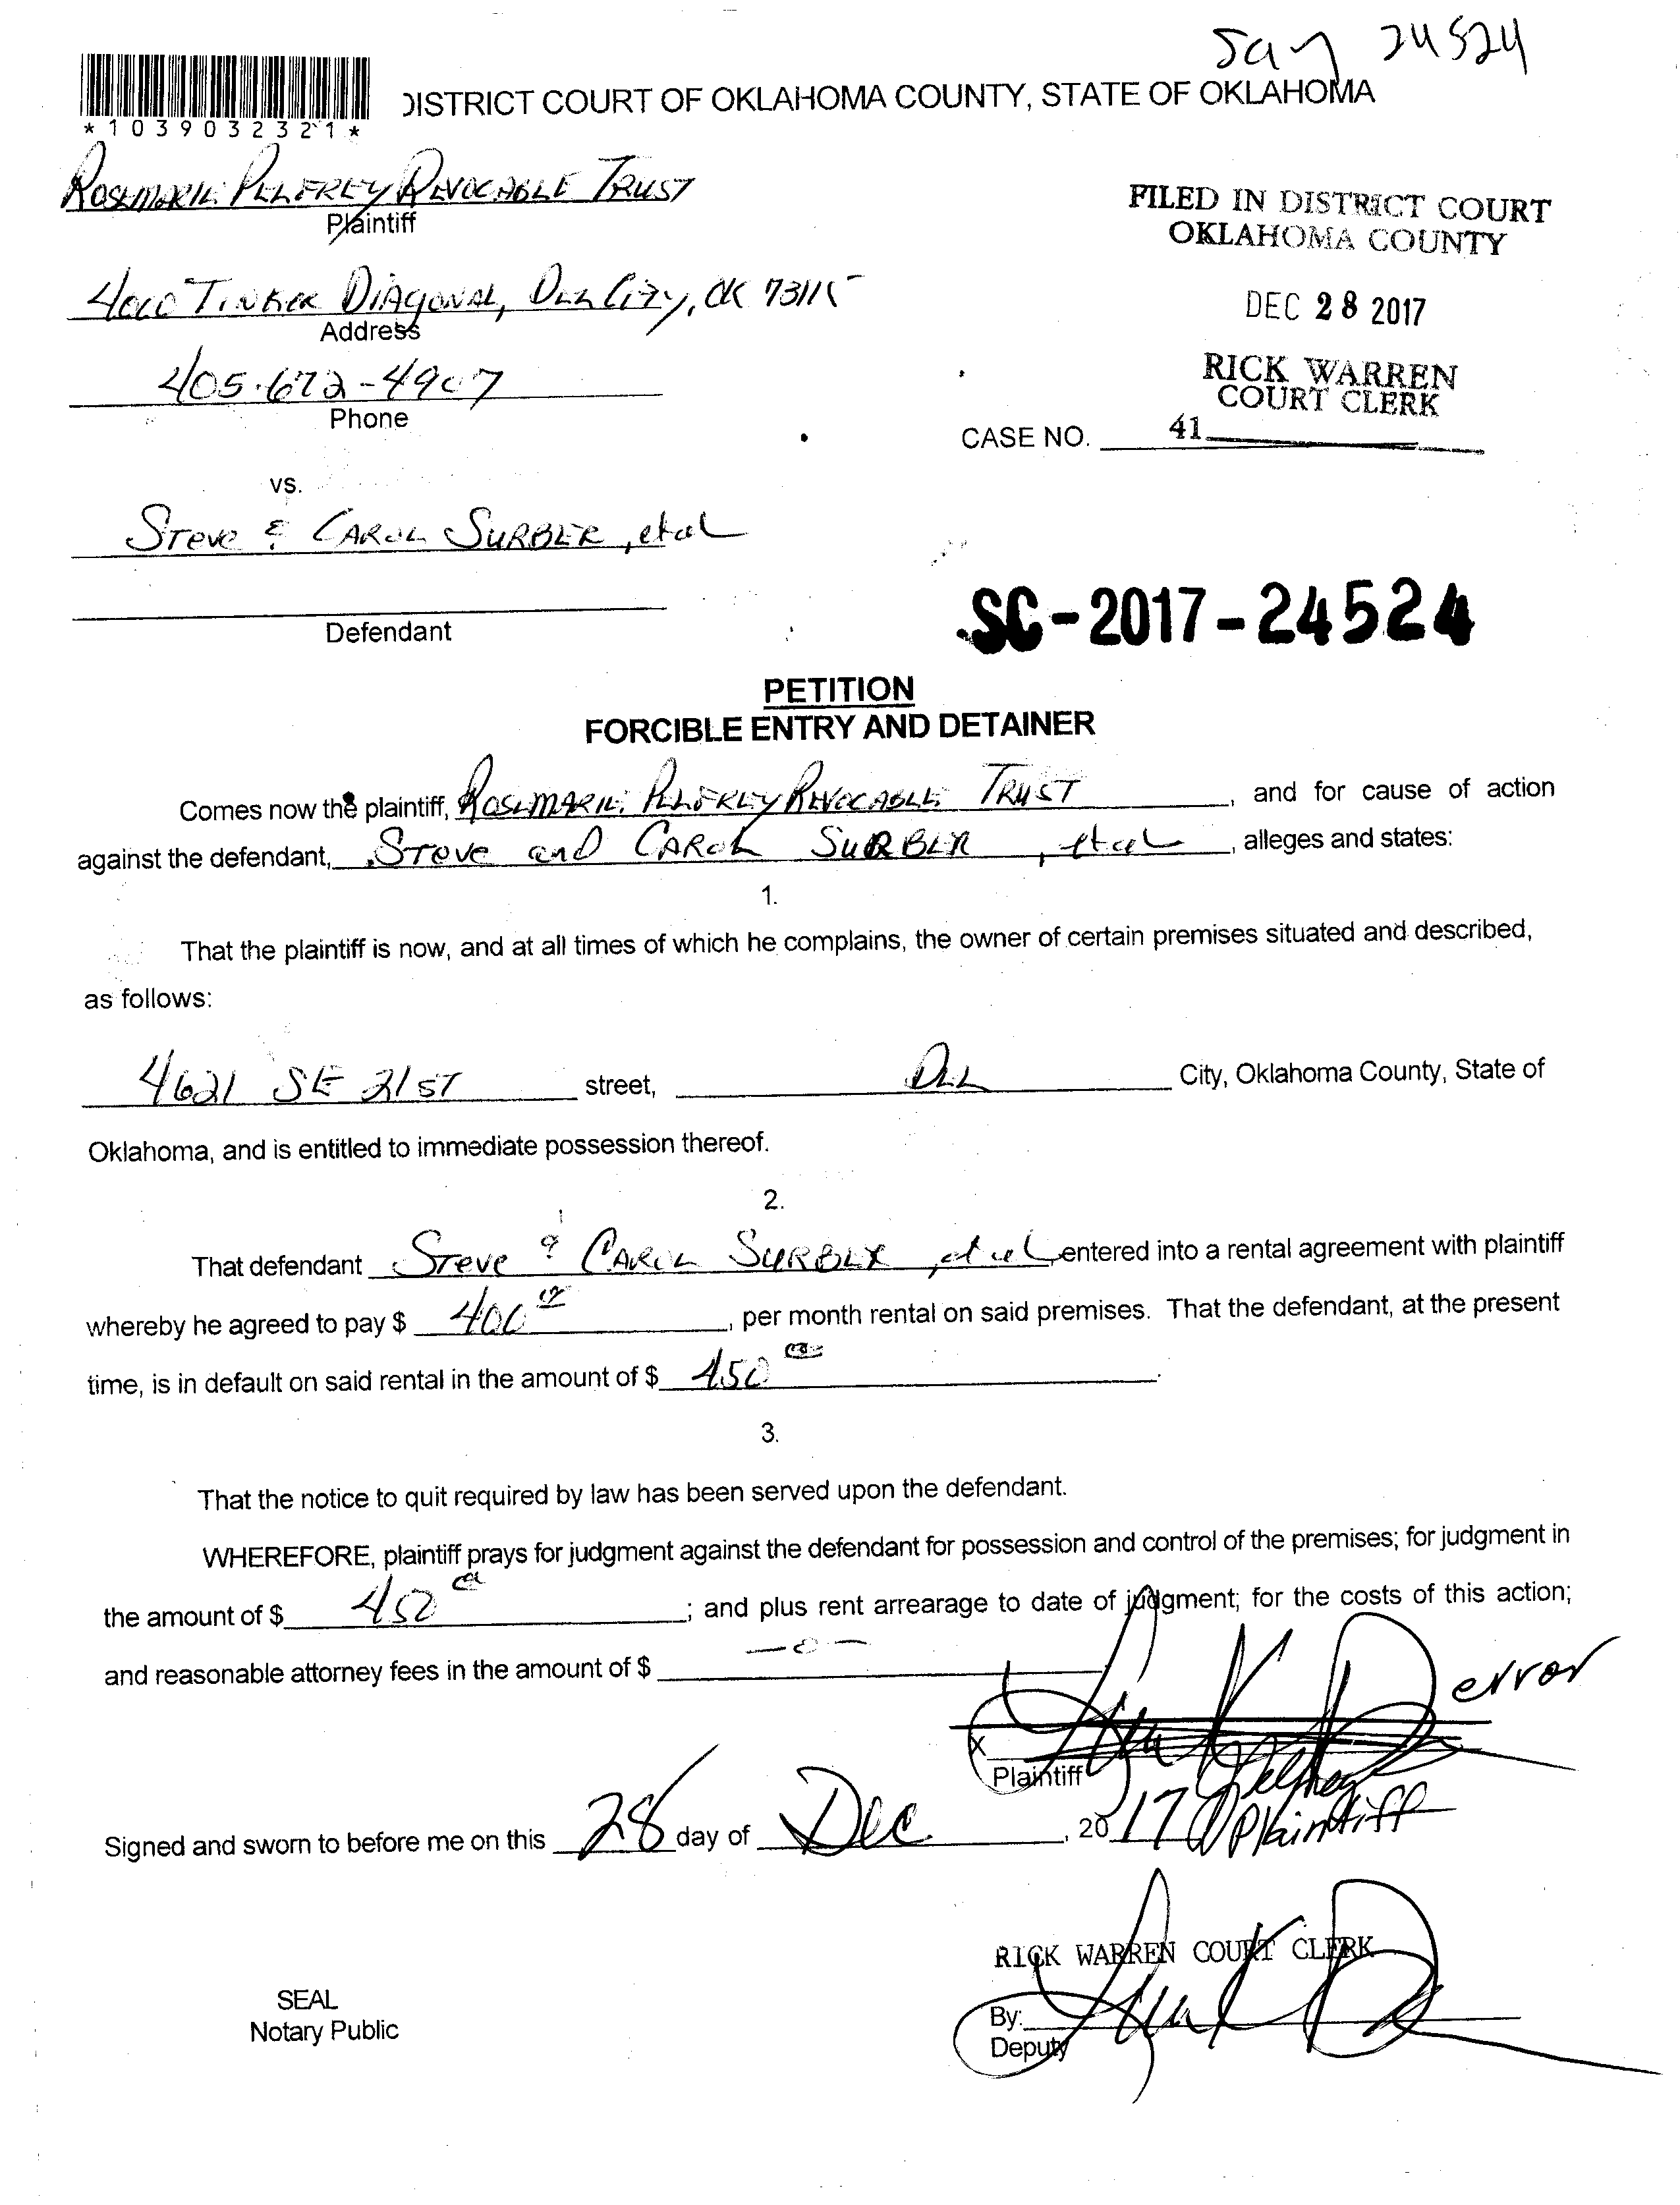 24524
DISTRICT COURT OF OKLAHOMA COUNTY, STATE OF OKLAHOMA
*1039032321*
ROSEMARIE PELFREY REVOCABLE TRUST
Plaintiff
FILED IN DISTRICT COURT
OKLAHOMA COUNTY
4000 TINKER DIAGONAL, DEL CITY, OK 73115
Address
DEC 28 2017
405-672-4907
Phone
RICK WARREN
COURT CLERK
CASE NO. 41
vs.
STEVE & CAROL SURBER, et al
Defendant
SC-2017-24524
PETITION
FORCIBLE ENTRY AND DETAINER
Comes now the plaintiff, ROSEMARIE PELFREY REVOCABLE TRUST, and for cause of action
against the defendant, STEVE and CAROL SURBER, et al, alleges and states:
1.
That the plaintiff is now, and at all times of which he complains, the owner of certain premises situated and described,
as follows:
4621 SE 21ST street, DEL City, Oklahoma County, State of
Oklahoma, and is entitled to immediate possession thereof.
2.
That defendant STEVE & CAROL SURBER, et al entered into a rental agreement with plaintiff
whereby he agreed to pay $ 400 00, per month rental on said premises. That the defendant, at the present
time, is in default on said rental in the amount of $ 450 00.
3.
That the notice to quit required by law has been served upon the defendant.
WHEREFORE, plaintiff prays for judgment against the defendant for possession and control of the premises; for judgment in
the amount of $ 450 00; and plus rent arrearage to date of judgment; for the costs of this action;
and reasonable attorney fees in the amount of $ -0-
error
X
Plaintiff
Signed and sworn to before me on this 28 day of Dec, 2017
Plaintiff
RICK WARREN COURT CLERK
SEAL
Notary Public
By:
Deputy